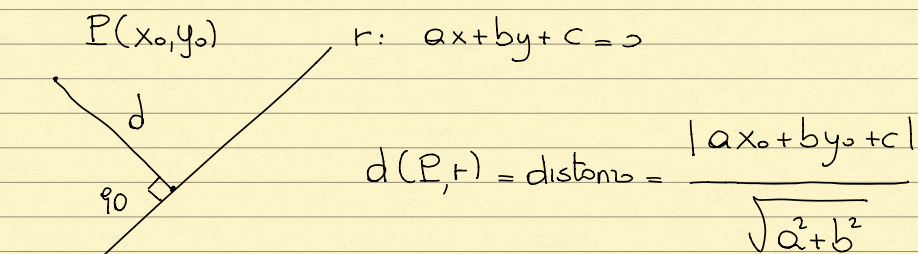 P(x₀,y₀) r: ax+by+c=0
d
90
d(P,r) = distanza = |ax₀+by₀+c| / √(a²+b²)